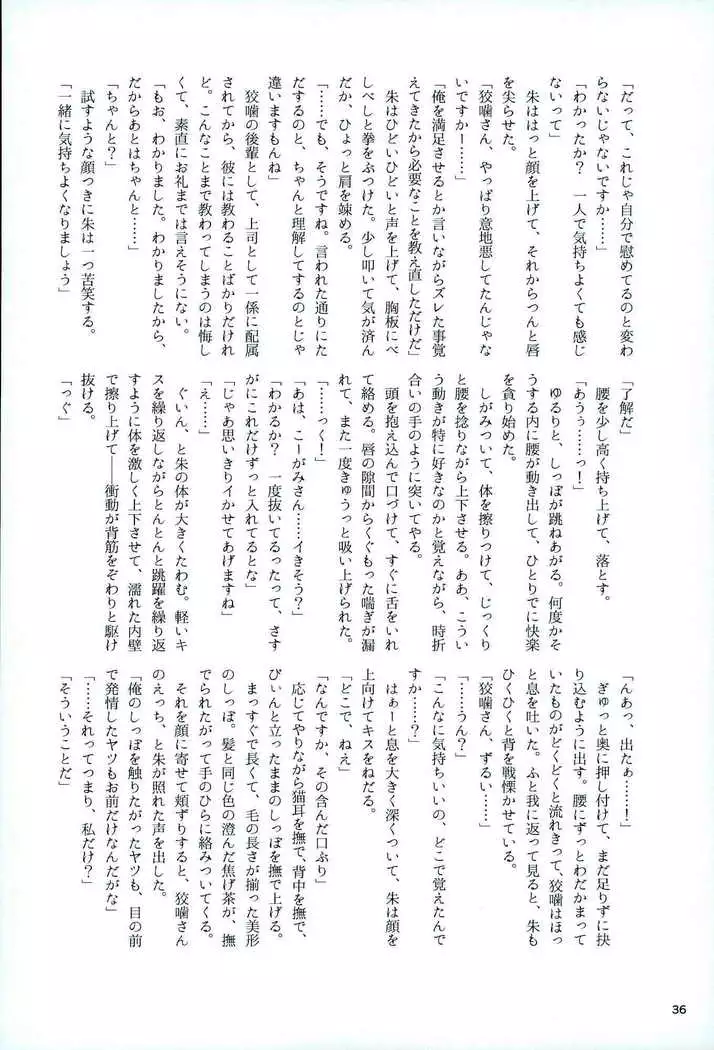 「だって、これじゃ自分で慰めてるのと変わ
らないじゃないですか……」
「わかったか? 一人で気持ちよくても感じ
ないって」
　朱ははっと顔を上げて、それからつんと唇
を尖らせた。
「狡噛さん、やっぱり意地悪してたんじゃな
いですかー……」
「俺を満足させるとか言いながらズレた事覚
えてきたから必要なことを教え直しただけだ」
　朱はひどいひどいと声を上げて、胸板にべ
しべしと拳をぶつけた。少し叩いて気が済ん
だか、ひょっと肩を竦める。
「……でも、そうですね。言われた通りにた
だするのと、ちゃんと理解してするのとじゃ
違いますもんね」
　狡噛の後輩として、上司として一係に配属
されてから、彼には教わることばかりだけれ
ど。こんなことまで教わってしまうのは悔し
くて、素直にお礼までは言えそうにない。
「もお、わかりました。わかりましたから、
だからあとはちゃんと……」
「ちゃんと?」
　試すような顔つきに朱は一つ苦笑する。
「一緒に気持ちよくなりましょう」
「了解だ」
　腰を少し高く持ち上げて、落とす。
「あうぅ……っ!」
　ゆるりと、しっぽが跳ねあがる。何度かそ
うする内に腰が動き出して、ひとりでに快楽
を貪り始めた。
　しがみついて、体を擦りつけて、じっくり
と腰を捻りながら上下させる。ああ、こうい
う動きが特に好きなのかと覚えながら、時折
合いの手のように突いてやる。
　頭を抱え込んで口づけて、すぐに舌をいれ
て絡める。唇の隙間からくぐもった喘ぎが漏
れて、また一度きゅうっと吸い上げられた。
「……っく!」
「あは、こーがみさん……イきそう?」
「わかるか? 一度抜いてるったって、さす
がにこれだけずっと入れてるとな」
「じゃあ思いきりイかせてあげますね」
「え……」
　ぐいん、と朱の体が大きくたわむ。軽いキ
スを繰り返しながらとんとんと跳躍を繰り返
すように体を激しく上下させて、濡れた内壁
で擦り上げて――衝動が背筋をぞわりと駆け
抜ける。
「っぐ」
「んあっ、出たぁ……!」
　ぎゅっと奥に押し付けて、まだ足りずに抉
り込むように出す。腰にずっとわだかまって
いたものがどくどくと流れきって、狡噛はほっ
と息を吐いた。ふと我に返って見ると、朱も
ひくひくと背を戦慄かせている。
「狡噛さん、ずるい……」
「……うん?」
「こんなに気持ちいいの、どこで覚えたんで
すか……?」
　はぁーと息を大きく深くついて、朱は顔を
上向けてキスをねだる。
「どこで、ねえ」
「なんですか、その含んだ口ぶり」
　応じてやりながら猫耳を撫で、背中を撫で、
ぴぃんと立ったままのしっぽを撫で上げる。
　まっすぐで長くて、毛の長さが揃った美形
のしっぽ。髪と同じ色の澄んだ焦げ茶が、撫
でられたがって手のひらに絡みついてくる。
　それを顔に寄せて頬ずりすると、狡噛さん
のえっち、と朱が照れた声を出した。
「俺のしっぽを触りたがったヤツも、目の前
で発情したヤツもお前だけなんだがな」
「……それってつまり、私だけ?」
「そういうことだ」
36